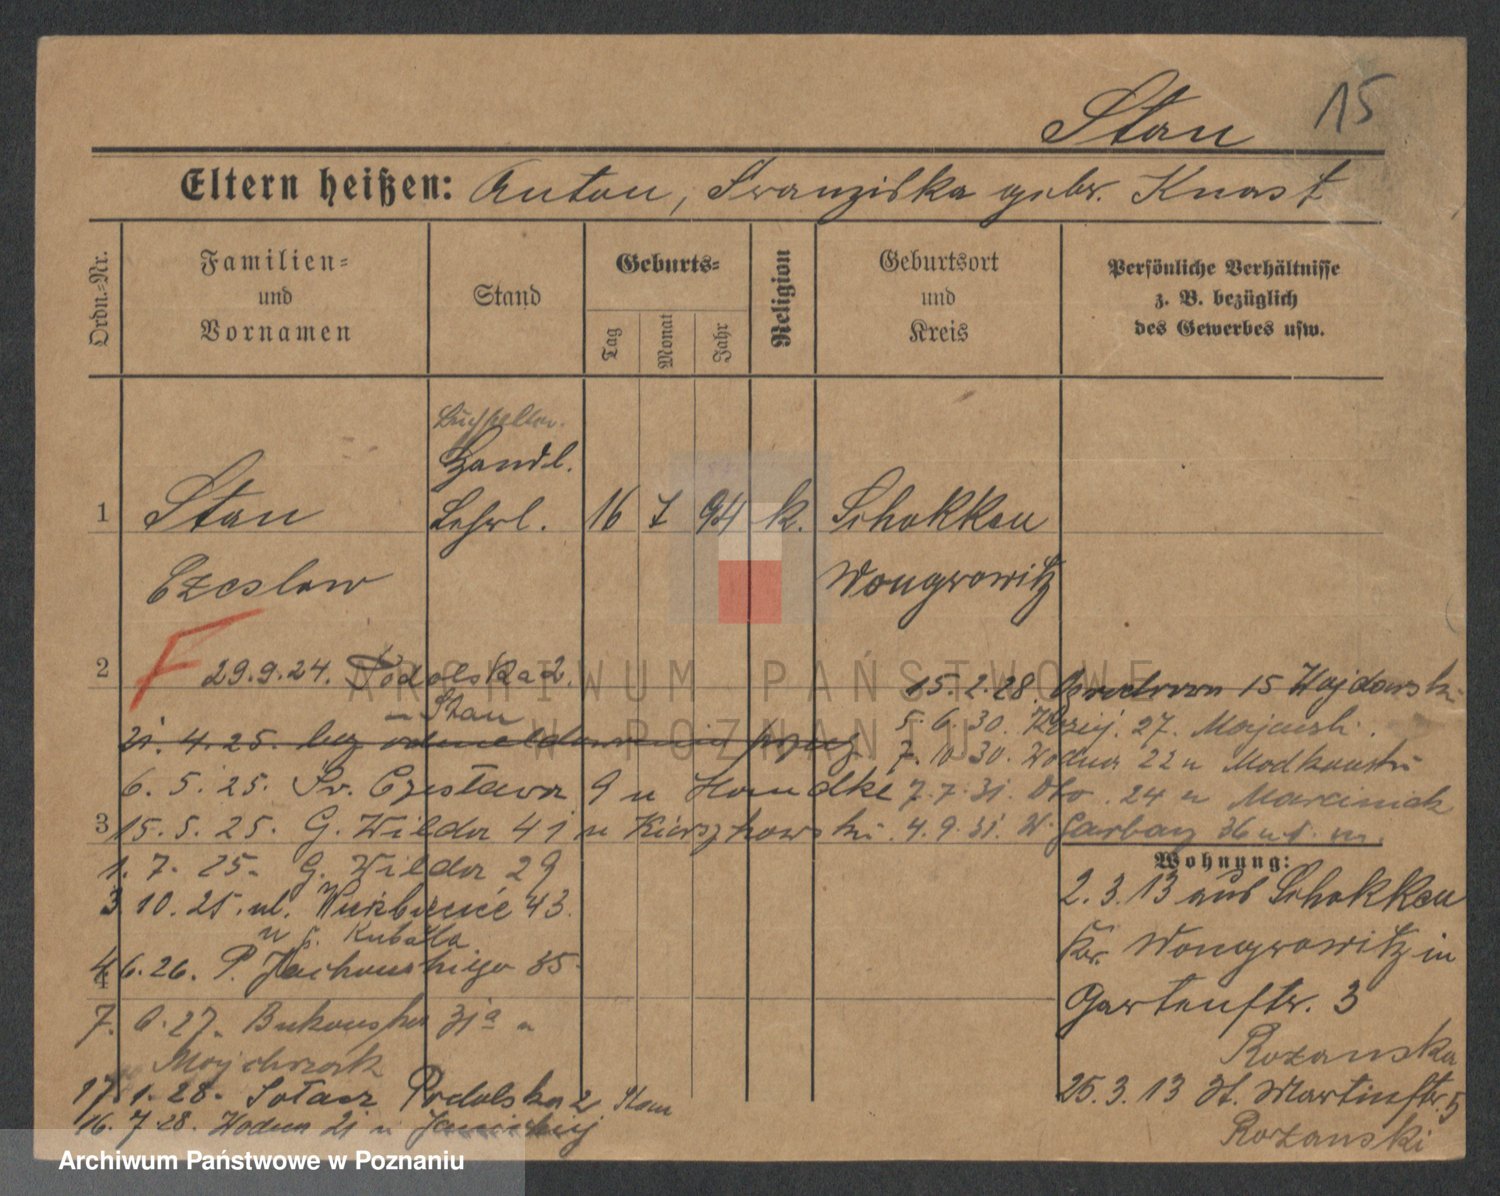 Stan 15
Eltern heißen: Anton, Franziska gebr. Knast
Ordn.=Nr.
Familien=
und
Vornamen
Stand
Geburts=
Tag
Monat
Jahr
Religion
Geburtsort
und
Kreis
Persönliche Verhältnisse
z. B. bezüglich
des Gewerbes usw.
Handl.
1 Stan Lehrl. 16 7 94 k. Schokken
Czeslaw Wongrowitz
2 29.9.24. Podolska 2.
Stan
21. 4. 25. bez odmeldowania
6. 5. 25. Św. Czesława 9 u Handke
3 15. 5. 25. G. Wilda 41 u Kierzkowski
1. 7. 25. G. Wilda 29
3 10. 25. ul. Wierzbięcic 43.
u Kubala
4 6. 26. P. 35
7. 6. 27. Bukowska 31a u
Majchrzak
17. 1. 28. Sołacz Podolska 2 Stan
16. 7. 28. Wodna 21 u
15. 2. 28. 15 Wojdowski
5. 6. 30. 27. Majewski.
7. 10 30. Wodna 22 u
7. 7. 31. 24 u Marciniak
4. 9. 31. W. Garbary 36 u
Wohnung:
2. 3. 13 aus Schokken
Kr. Wongrowitz in
Gartenstr. 3
Rozanska
25. 3. 13 St. Martinstr. 5
Rozanski
ARCHIWUM PAŃSTWOWE
W POZNANIU
Archiwum Państwowe w Poznaniu